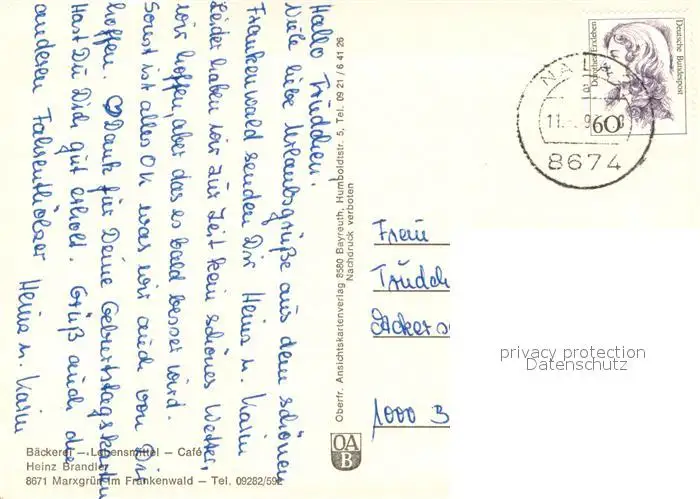 Hallo Trudchen.
Viele liebe Urlaubsgrüße aus dem schönen
Frankenwald senden Dir Heinz u. Karin
Leider haben wir zur Zeit kein schönes Wetter,
wir hoffen, aber das es bald besser wird.
Sonst ist alles OK was wir auch von Dir
hoffen. Dank für Deine Geburtstagskarten
Hast Du Dich gut erholt. Grüß auch die
anderen Heinz u. Karin
Bäckerei — Lebensmittel — Café
Heinz Brandler
8671 Marxgrün im Frankenwald — Tel. 09282/59
Oberfr. Ansichtskartenverlag 8580 Bayreuth, Humboldtstr. 5, Tel. 09 21 / 6 41 26
Nachdruck verboten
OA
B
Dorothea Erxleben
Deutsche Bundespost
60
NAILA
11.
8674
Frau
Trudch
Ackers
1000 B
privacy protection
Datenschutz